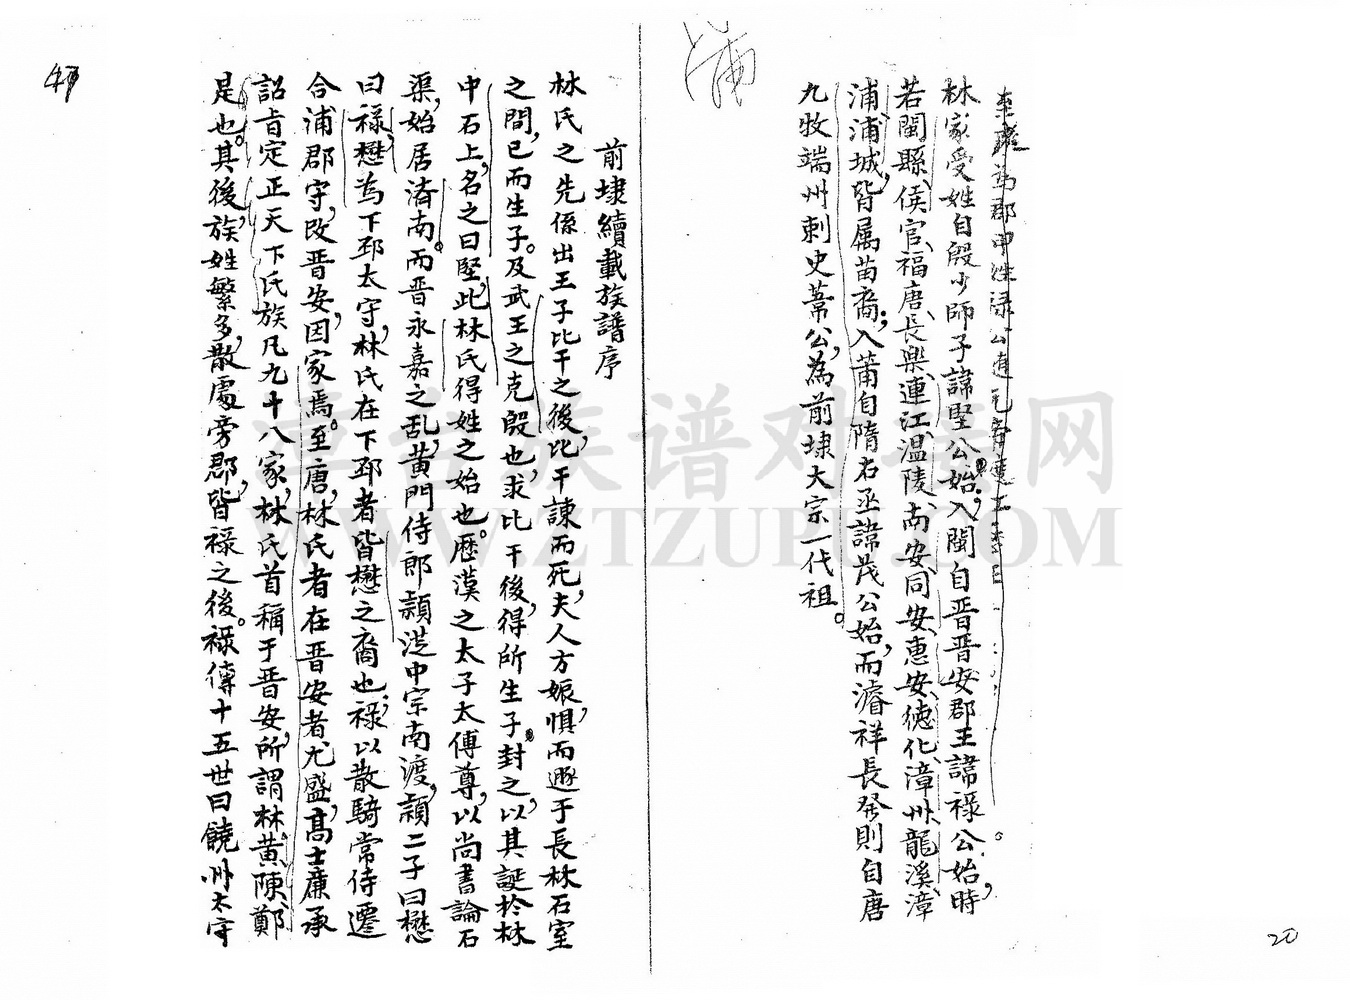 蒲
林家受姓自殷少師子諱堅公始;入閩自晋晋安郡王諱祿公始時,
若閩縣、侯官、福唐、長樂、連江、温陵、南安、同安、惠安、德化、漳州、龍溪、漳
浦、浦城,皆属苗裔;入莆自隋右丞諱茂公始,而濬祥長發則自唐
九牧端州刺史葦公,為前埭大宗一代祖。
20
前埭續載族譜序
林氏之先係出王子比干之後,比干諫而死,夫人方娠,惧而遯于長林石室
之間,已而生子。及武王之克殷也,求比干後,得所生子封之,以其誕於林
中石上,名之曰堅,此林氏得姓之始也。歷漢之太子太傅尊,以尚書論石
渠,始居済南。而晋永嘉之乱,黄門侍郎頴從中宗南渡,頴二子曰懋
曰祿,懋為下邳太守,林氏在下邳者皆懋之裔也,祿以散騎常侍遷
合浦郡守,改晋安,因家焉。至唐,林氏者在晋安者尤盛,高士廉承
詔旨定正天下氏族凡九十八家,林氏首稱于晋安,所謂林、黄、陳、鄭
是也。其後,族姓繁多,散處旁郡,皆祿之後。祿傳十五世曰饒州太守
漳台族谱对接网
WWW.ZTZUPU.COM